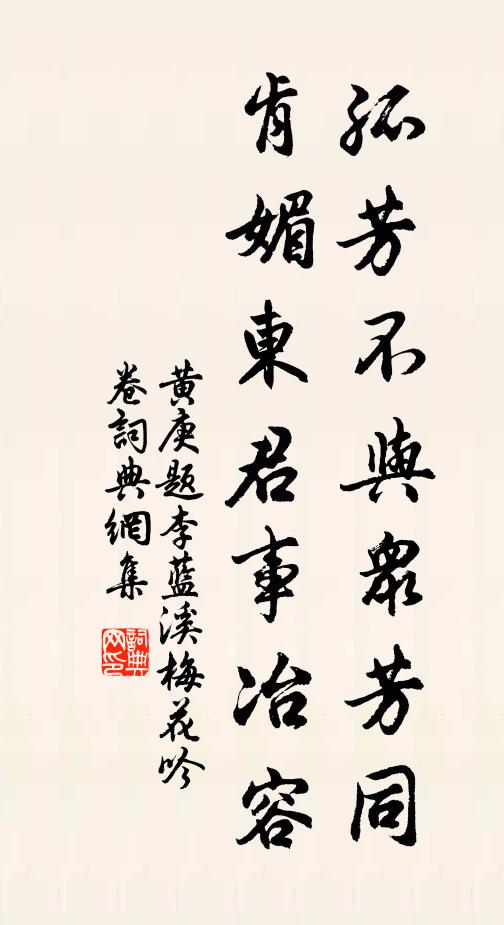 孤芳不與眾芳同
肯媚東君事冶容
黃庚题李藍溪梅花吟
卷詞典網集
詞典网印